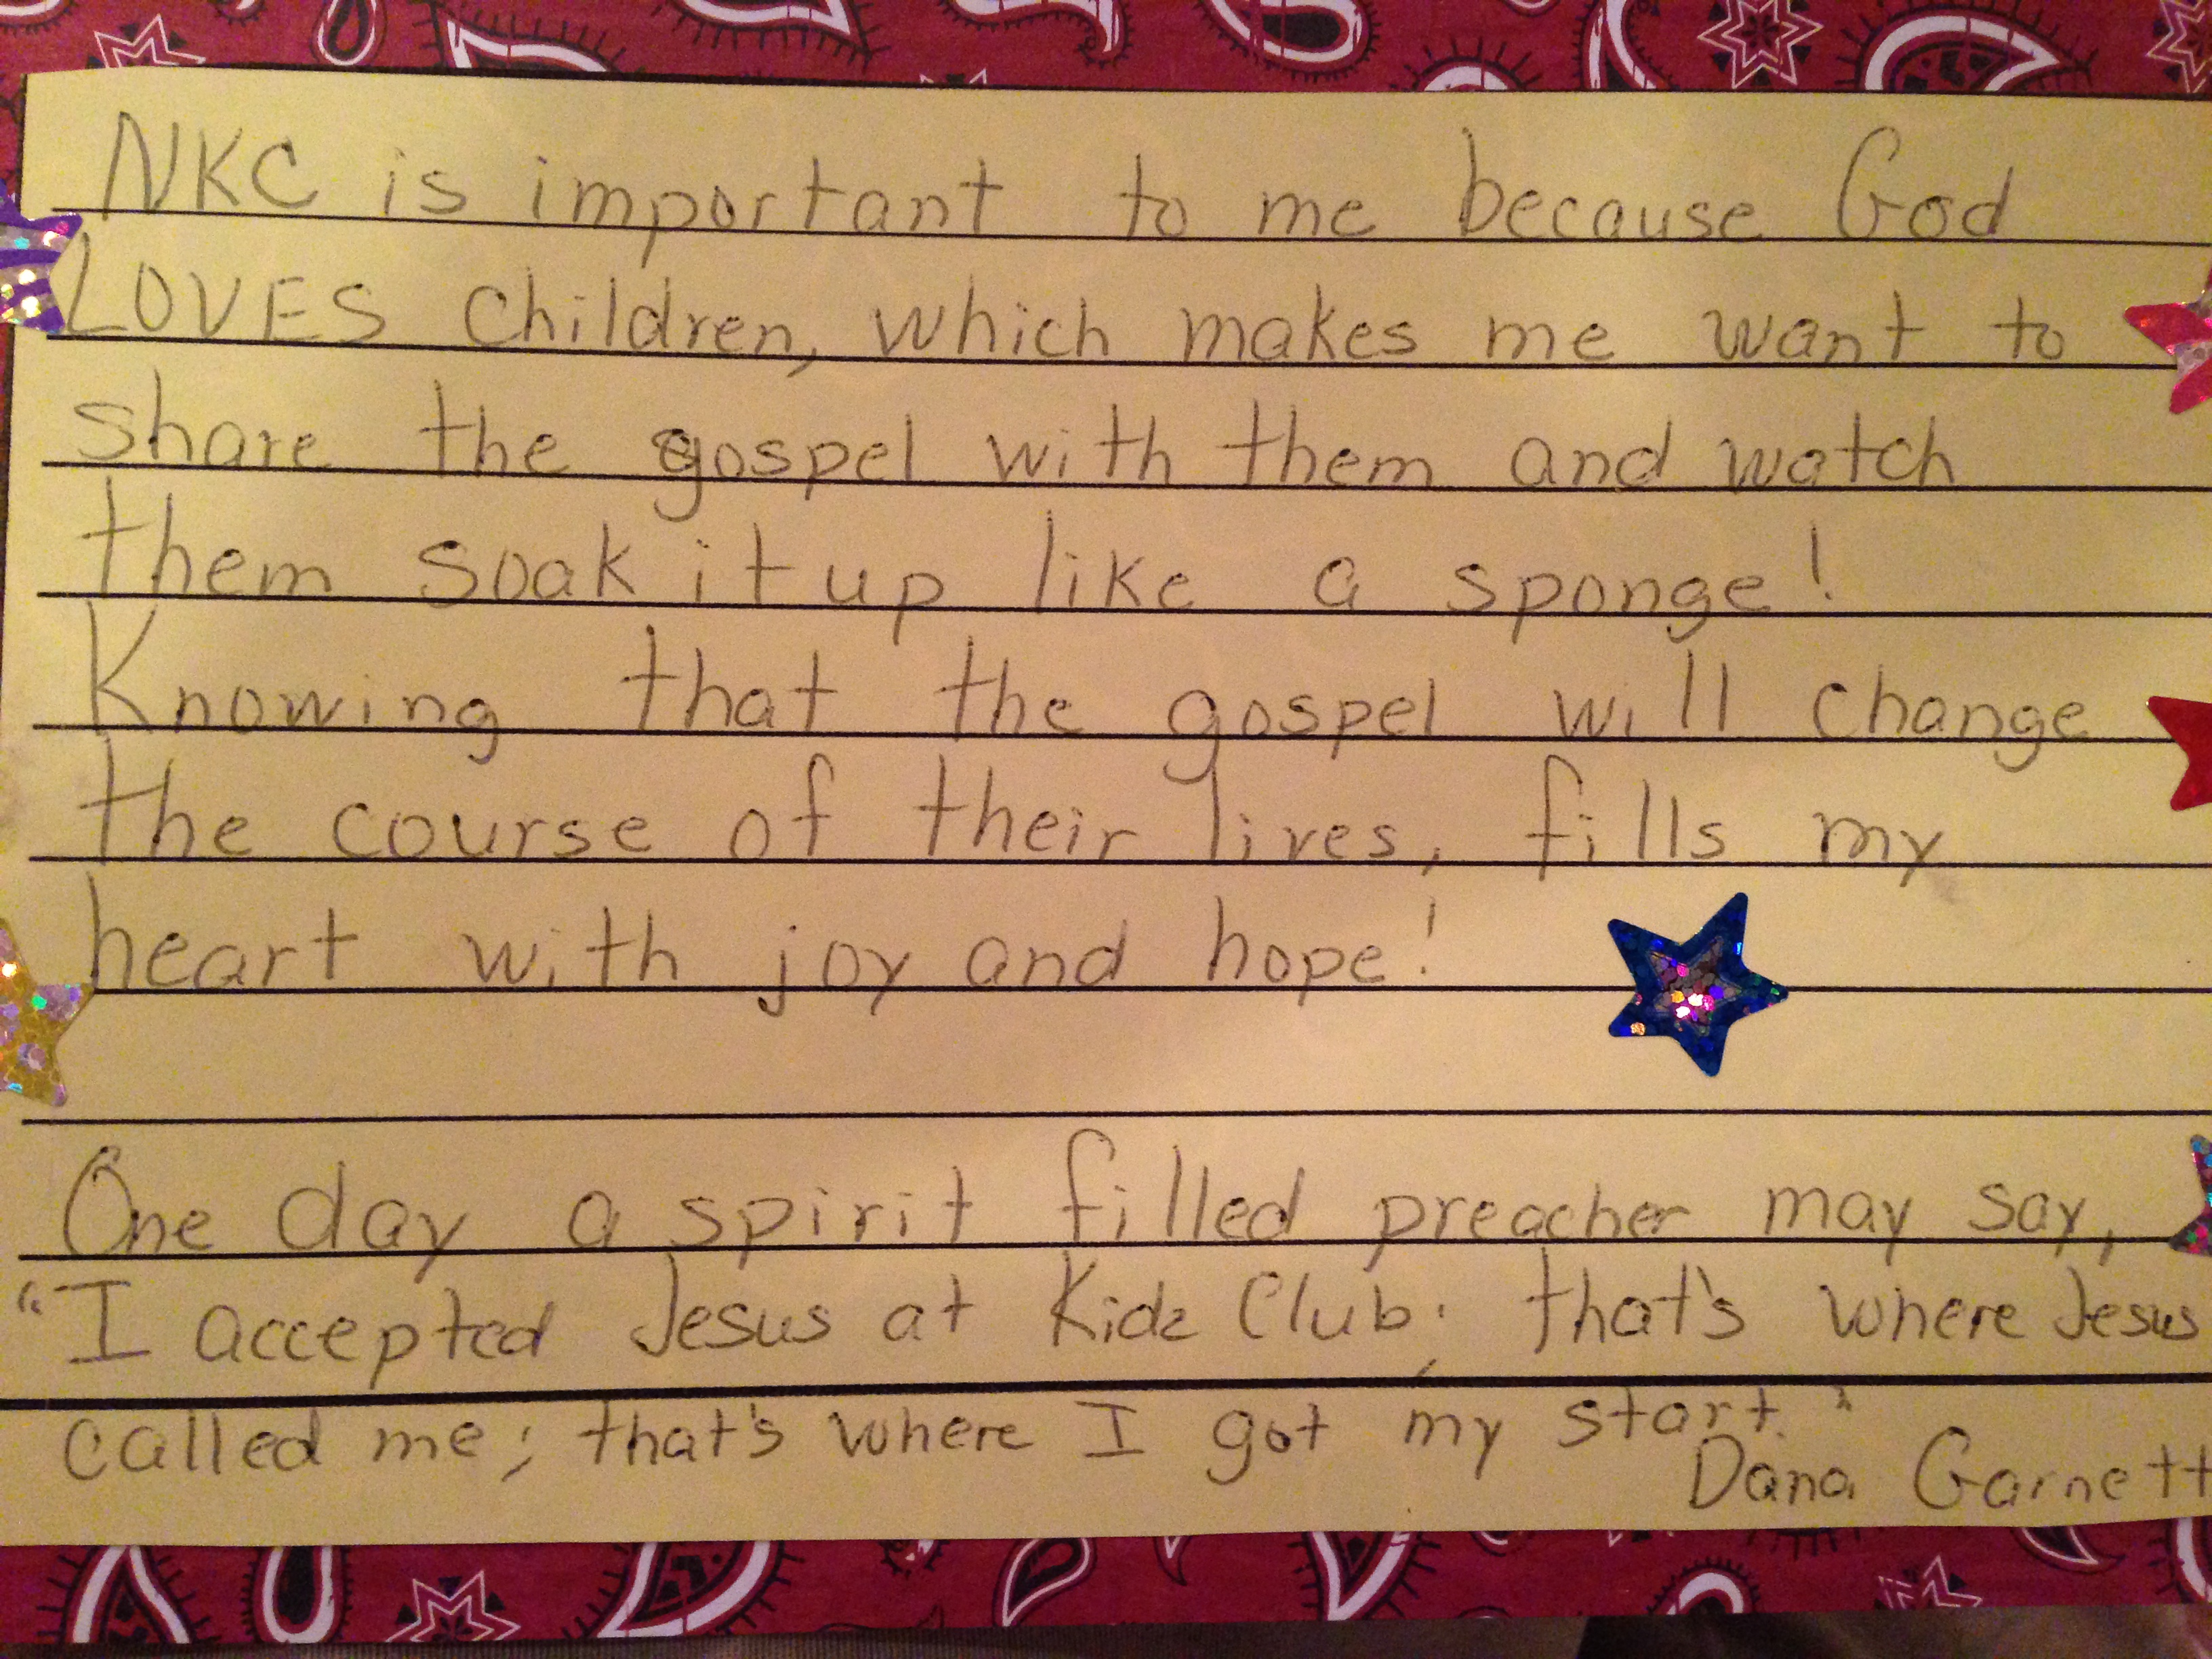 NKC is important to me because God
LOVES children, which makes me want to
share the gospel with them and watch
them soak it up like a sponge!
Knowing that the gospel will change
the course of their lives, fills my
heart with joy and hope!
One day a spirit filled preacher may say,
"I accepted Jesus at Kidz Club; that's where Jesus
called me; that's where I got my start."
Dana Garnett